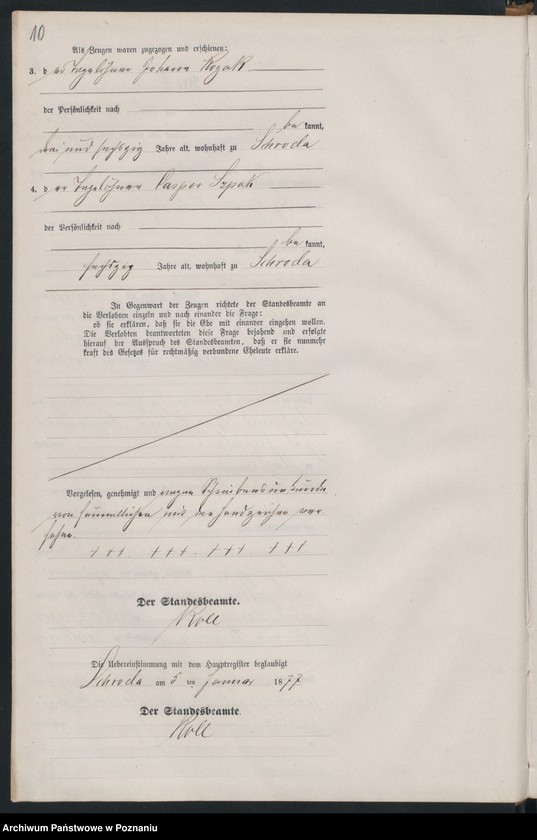 10
Als Zeugen waren zugezogen und erschienen:
3. der Tagelöhner Johann Kozak
der Persönlichkeit nach
be kannt,
zwei und sechszig Jahre alt, wohnhaft zu Schroda
4. der Tagelöhner Caspar Szpak
der Persönlichkeit nach
be kannt,
sechszig Jahre alt, wohnhaft zu Schroda
In Gegenwart der Zeugen richtete der Standesbeamte an
die Verlobten einzeln und nach einander die Frage:
ob sie erklären, daß sie die Ehe mit einander eingehen wollen.
Die Verlobten beantworteten diese Frage bejahend und erfolgte
hierauf der Ausspruch des Standesbeamten, daß er sie nunmehr
kraft des Gesetzes für rechtmäßig verbundene Eheleute erkläre.
Vorgelesen, genehmigt und wegen Schreibensunkunde
von sämmtlichen mit Handzeichen ver
sehen.
+++ +++ +++ +++
Der Standesbeamte.
Roll
Die Uebereinstimmung mit dem Hauptregister beglaubigt
Schroda am 5 ten Januar 1877
Der Standesbeamte.
Roll
Archiwum Państwowe w Poznaniu